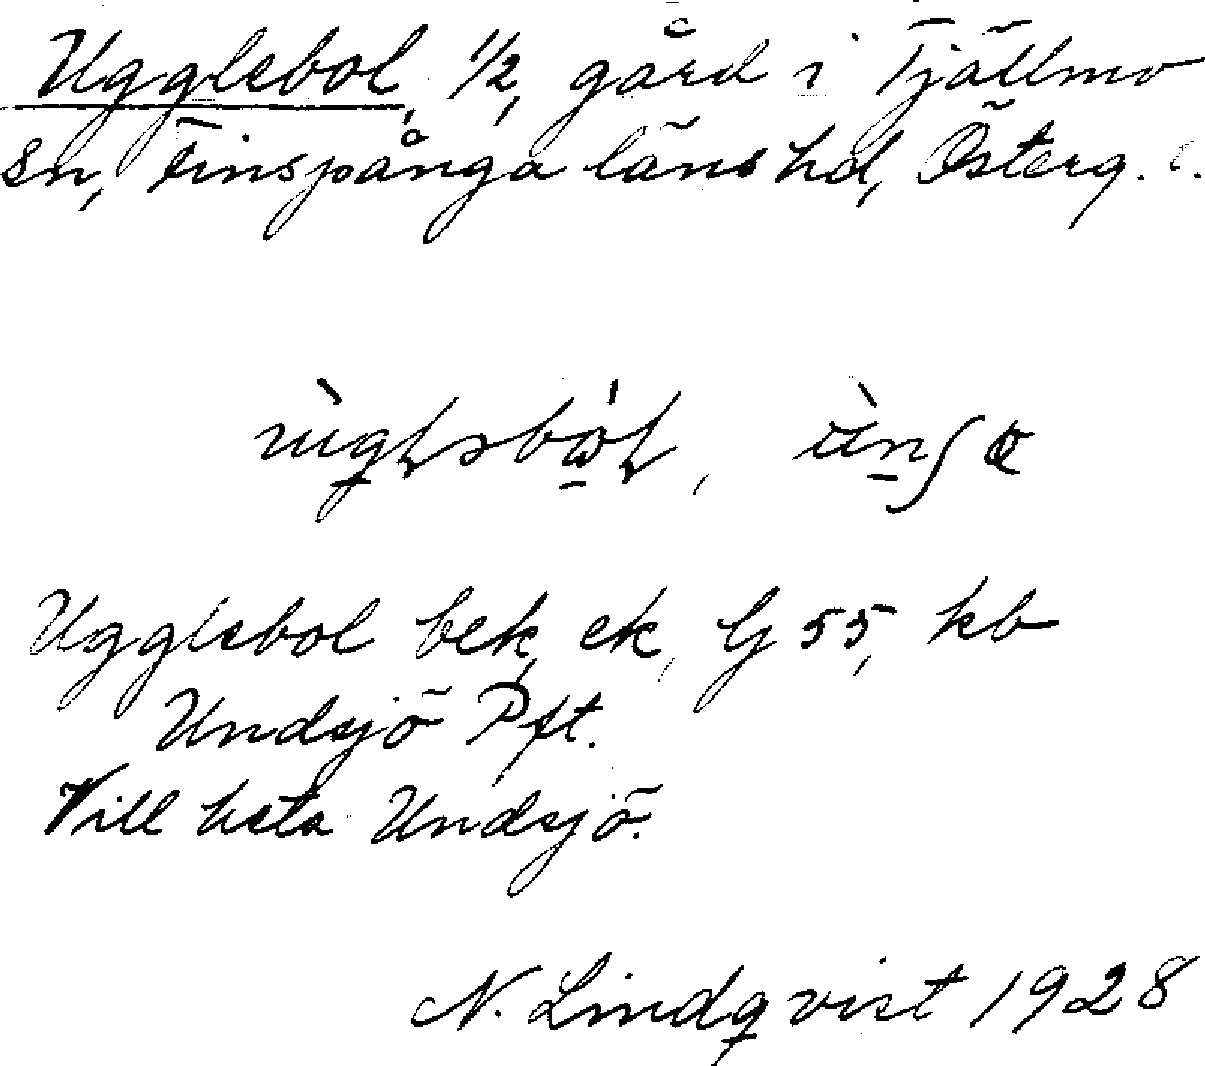 Ugglebol, 1/2, gård i Tjällmo
sn, Finspånga läns hd, Österg. l.
Ugglebol bek, ek, G 55, kb
Undsjö Pft.
Vill heta Undsjö.
N. Lindqvist 1928